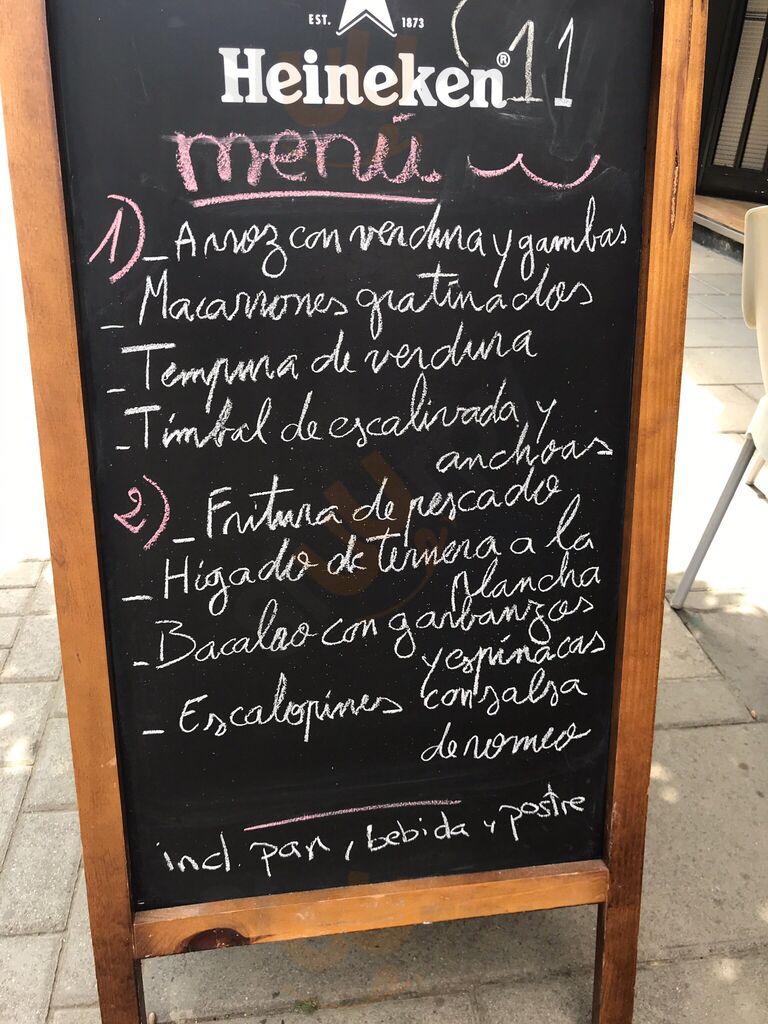 EST. 1873
Heineken® 11
menú
1) - Arroz con verdura y gambas
- Macarrones gratinados
- Tempura de verdura
- Timbal de escalivada y
anchoas
2) - Fritura de pescado
- Hígado de ternera a la
plancha
- Bacalao con garbanzos
y espinacas
- Escalopines con salsa
de romeo
incl. pan, bebida y postre